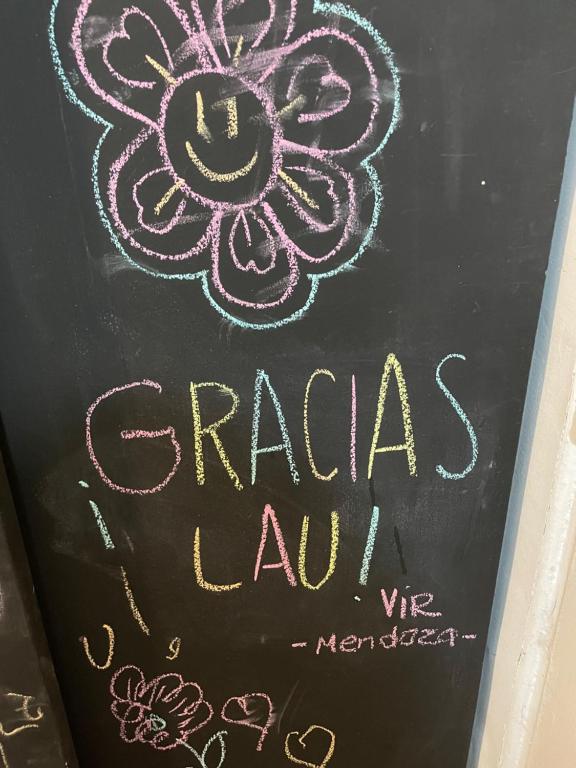 GRACIAS
¡ LAU!
VIR
-Mendoza-